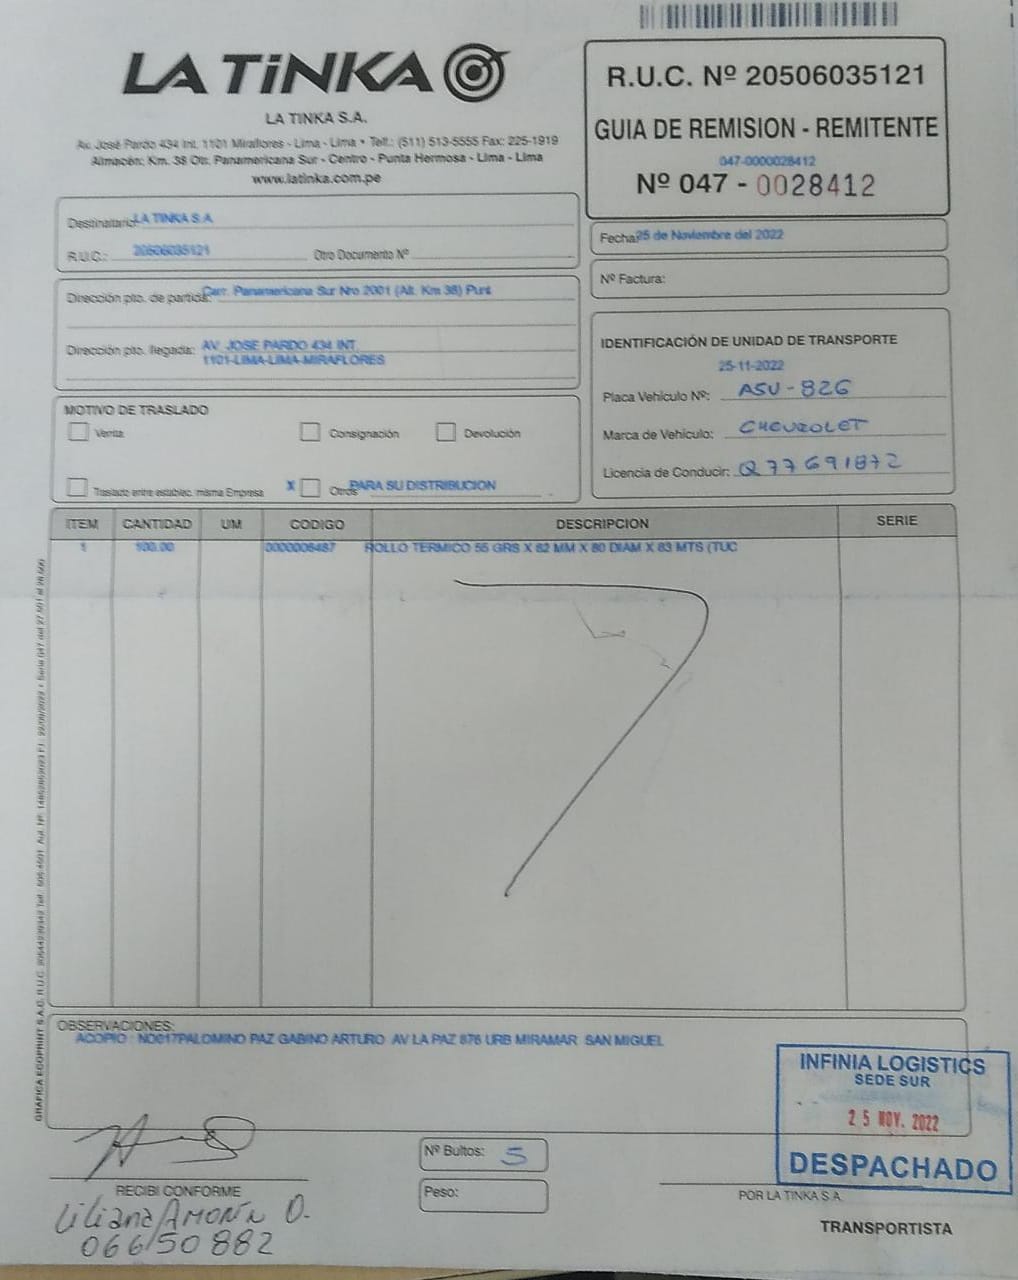 LA TiNKA
LA TINKA S.A.
Av. José Pardo 434 Int. 1101 Miraflores - Lima - Lima • Telf.: (511) 513-5555 Fax: 225-1919
Almacén: Km. 38 Ctr. Panamericana Sur - Centro - Punta Hermosa - Lima - Lima
www.latinka.com.pe
R.U.C. Nº 20506035121
GUIA DE REMISION - REMITENTE
047-0000028412
Nº 047 - 0028412
Destinatario: LA TINKA S.A.
R.U.C.: 20506035121 Otro Documento Nº
Fecha: 25 de Noviembre del 2022
Nº Factura:
Dirección pto. de partida: Carr. Panamericana Sur Nro 2001 (Alt. Km 38) Punt
Dirección pto. llegada: AV. JOSE PARDO 434 INT.
1101-LIMA-LIMA-MIRAFLORES
IDENTIFICACIÓN DE UNIDAD DE TRANSPORTE
25-11-2022
Placa Vehículo Nº: ASU-826
Marca de Vehículo: CHEVROLET
Licencia de Conducir: Q77691872
MOTIVO DE TRASLADO
Venta Consignación Devolución
Traslado entre establec. misma Empresa X Otros PARA SU DISTRIBUCION
ITEM CANTIDAD UM CODIGO DESCRIPCION SERIE
1 500.00 0000006487 ROLLO TERMICO 55 GRS X 82 MM X 80 DIAM X 83 MTS (TUC
OBSERVACIONES:
ACOPIO : NO017PALOMINO PAZ GABINO ARTURO AV LA PAZ 876 URB MIRAMAR SAN MIGUEL
INFINIA LOGISTICS
SEDE SUR
25 NOV. 2022
DESPACHADO
Nº Bultos: 5
Peso:
RECIBI CONFORME
Liliana
06650882
POR LA TINKA S.A.
TRANSPORTISTA